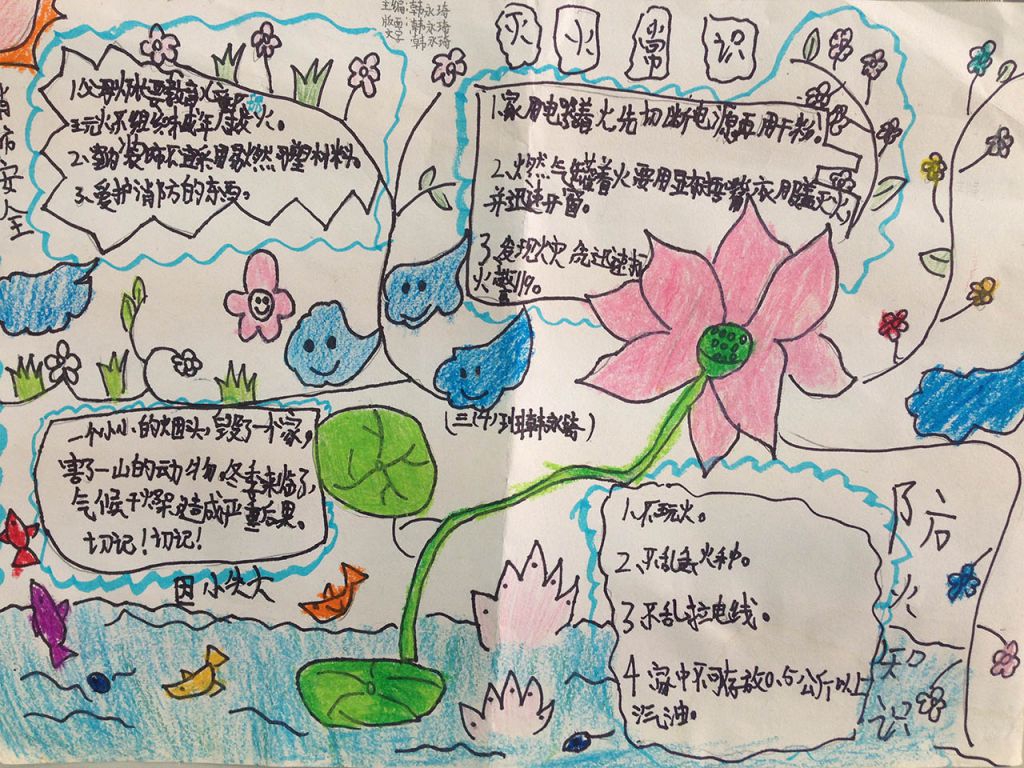 主编:韩永琦
版画:韩永琦
文字:韩永琦
灭火常识
消防安全
2.室内装饰不宜采用易燃可塑材料。
3.爱护消防的东西。
1.家用电路着火先切断电源再用干粉。
2.燃气罐着火要用
盖灭火,
并迅速开窗。
3.发现火灾
迅速
火警119。
(三(4)班韩永琦)
一个小小的烟头,毁了一个家,
害了一山的动物。冬季来临了,
气候干燥造成严重后果。
切记!切记!
因小失大
防火知识
1.不玩火。
2.不乱丢火种。
3.不乱拉电线。
4.家中不可存放0.5公斤以上
汽油。